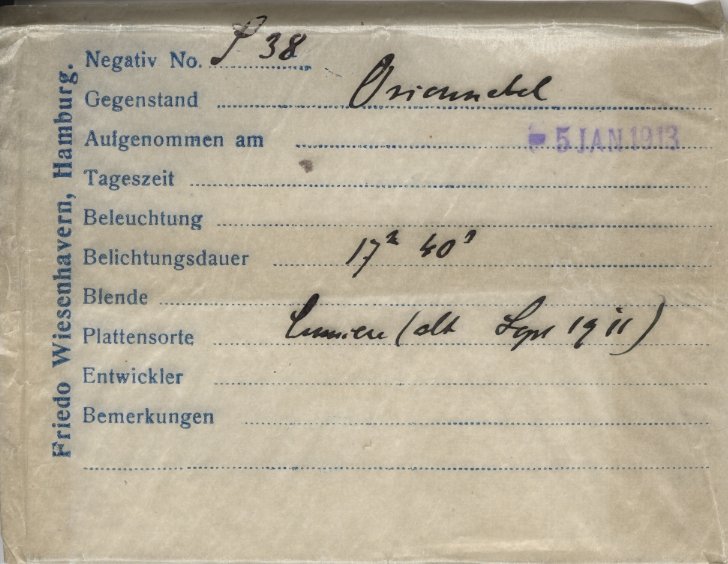 Friedo Wiesenhavern, Hamburg.
Negativ No. S 38
Gegenstand Orionnebel
Aufgenommen am 5 JAN 1913
Tageszeit
Beleuchtung
Belichtungsdauer 17 40
Blende
Plattensorte Lumiere (alt Sept 1911)
Entwickler
Bemerkungen